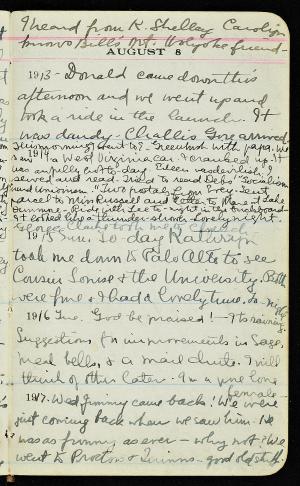 I heard from K. Shelley. Carolyn
knows Bell's Mt. Holyoke friend -
AUGUST 8
1913 - Donald came down this
afternoon and we went up and
took a ride in the launch. It
was dandy - Challis Gore arrived
This morning went to Greenbush with papa. We
1914
saw a West Virginia car & cranked up. It
was an awfully hot day. Eileen
served and read. Started to read Debs' "Socialism
and Unionism." Two postals from Evey. Sent
parcel to Miss Russell and letter to Margaret Lake
Ride with Lee to-night in the
It looked like a thunder shower. Lovely night.
George Clarke took me to church
1915 Sun. To day Kathryn
took me down to Palo Alto to see
Cousin Louise & the University. Both
were fine & I had a lovely time. to-night
1916 Tue. God be praised! - It's raining.
Suggestions for improvements in
meal bells, & a mail chute. I will
think of other later. I'm a pine cone
female -
1917. Wed. Jimmy came back! We were
just coming back when we saw him. He
was as funny as ever - why not? We
went to Procton & Quinns - good old stuff.